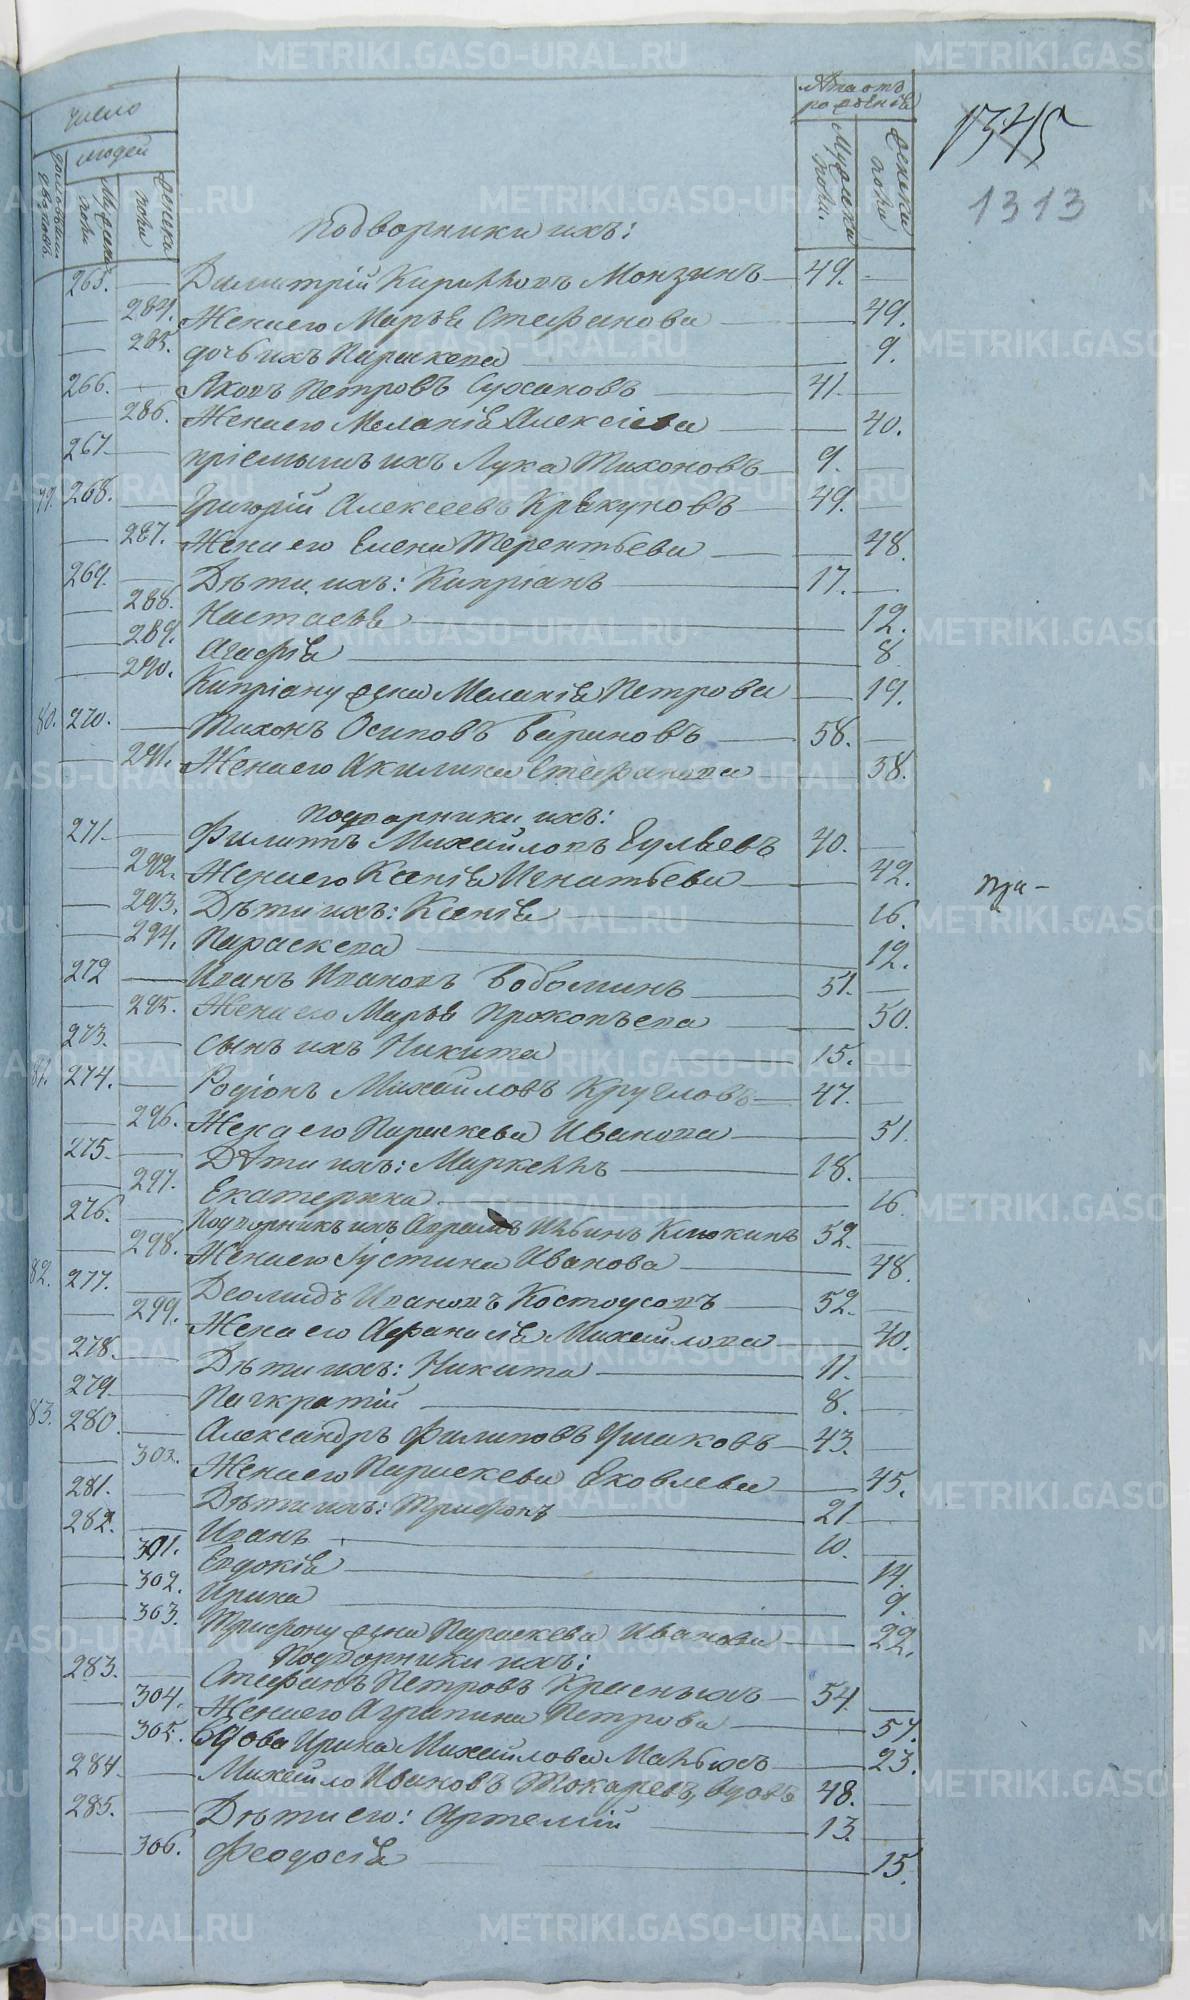 число
людей
Лѣта отъ
рожденія
мужеска
полу.
женска
полу
1345
1313
Подворники ихъ:
263. Димитрій Кирилловъ Монзинъ 49.
284. Жена его Марья Стефанова 49.
285. дочь ихъ Параскева 9.
266. Яковъ Петровъ Сухановъ 41.
286. Жена его Меланія Алексіева 40.
267. пріемышъ ихъ Лука Тихоновъ 9.
79. 268. Григорій Алексеевъ Крякуновъ 49.
287. Жена его Елена Терентьева 48.
269. Дѣти ихъ: Кипріанъ 17.
288. Настасья 12.
289. Агафія 8
290. Кипріану жена Меланія Петрова 19.
80. 270. Тихонъ Осиповъ Бариновъ 58.
291. Жена его Акилина Стефанова 58.
Подворники ихъ:
271. Филиппъ Михайловъ Гуляевъ 40.
292. Жена его Ксенія Игнатьева 42.
293. Дѣти ихъ: Ксенія 16.
294. Параскева 12.
при-
272 Иванъ Ивановъ Бобошинъ 51.
295. Жена его Марья Прокопьева 50.
273. сынъ ихъ Никита 15.
81. 274. Родіонъ Михайловъ Кругловъ 47.
296. Жена его Параскева Иванова 51.
275. Дѣти ихъ: Маркеллъ 18.
297. Екатерина 16.
276. Подворникъ ихъ Аврамъ Ильинъ Клюкинъ 52.
298. Жена его Іустина Иванова 48.
82. 277. Деомидъ Ивановъ Костоусовъ 52.
299. Жена его Афанасія Михайлова 40.
278. Дѣти ихъ: Никита 11.
279. Панкратій 8.
83. 280. Александръ Филиповъ Ушаковъ 43.
300. Жена его Параскева Яковлева 45.
281. Дѣти ихъ: Трифонъ 21
282. Иванъ 10.
301. Евдокія 14.
302. Ирина 9.
303. Трифону жена Параскева Иванова 22.
Подворники ихъ:
283. Стефанъ Петровъ Красныхъ 54.
304. Жена его Агрипина Петрова 57.
305. Вдова Ирина Михайлова Малыхъ 23.
284. Михайло Ивановъ Токаревъ, вдовъ 48.
285. Дѣти его: Артемій 13.
306. Феодосія 15.
METRIKI.GASO-URAL.RU